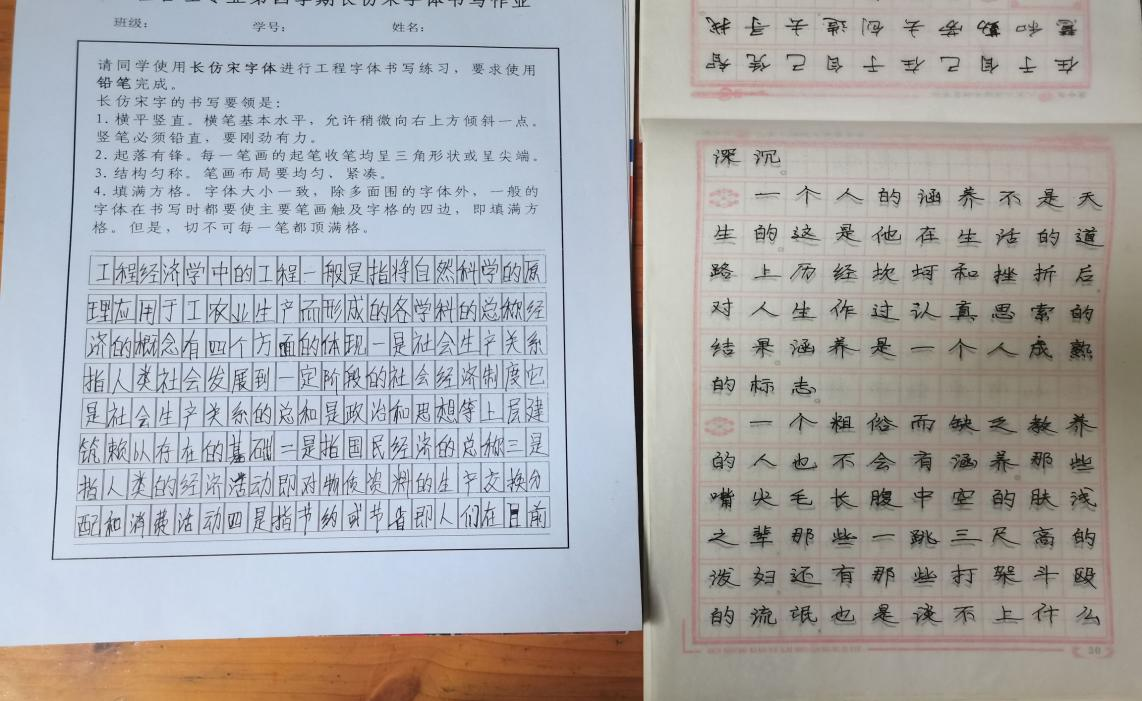 专业第四学期长仿宋字体书写作业
班级： 学号： 姓名：
请同学使用长仿宋字体进行工程字体书写练习，要求使用
铅笔完成。
长仿宋字的书写要领是：
1. 横平竖直。横笔基本水平，允许稍微向右上方倾斜一点。
竖笔必须铅直，要刚劲有力。
2. 起落有锋。每一笔画的起笔收笔均呈三角形状或呈尖端。
3. 结构匀称。笔画布局要均匀、紧凑。
4. 填满方格。字体大小一致，除多面围的字体外，一般的
字体在书写时都要使主要笔画触及字格的四边，即填满方
格。但是，切不可每一笔都顶满格。
工程经济学中的工程一般是指将自然科学的原
理应用于工农业生产而形成的各学科的总称经
济的概念有四个方面的体现一是社会生产关系
指人类社会发展到一定阶段的社会经济制度它
是社会生产关系的总和是政治和思想等上层建
筑赖以存在的基础二是指国民经济的总称三是
指人类的经济活动即对物质资料的生产交换分
配和消费活动四是指节约或节省即人们在日前
在于自己在于自己凭智
慧和勤劳去创造去寻找
深沉。
一个人的涵养不是天
生的。这是他在生活的道
路上历经坎坷和挫折后
对人生作过认真思索的
结果。涵养是一个人成熟
的标志。
一个粗俗而缺乏教养
的人也不会有涵养。那些
嘴尖毛长腹中空的肤浅
之辈那些一跳三尺高的
泼妇还有那些打架斗殴
的流氓也是谈不上什么
30